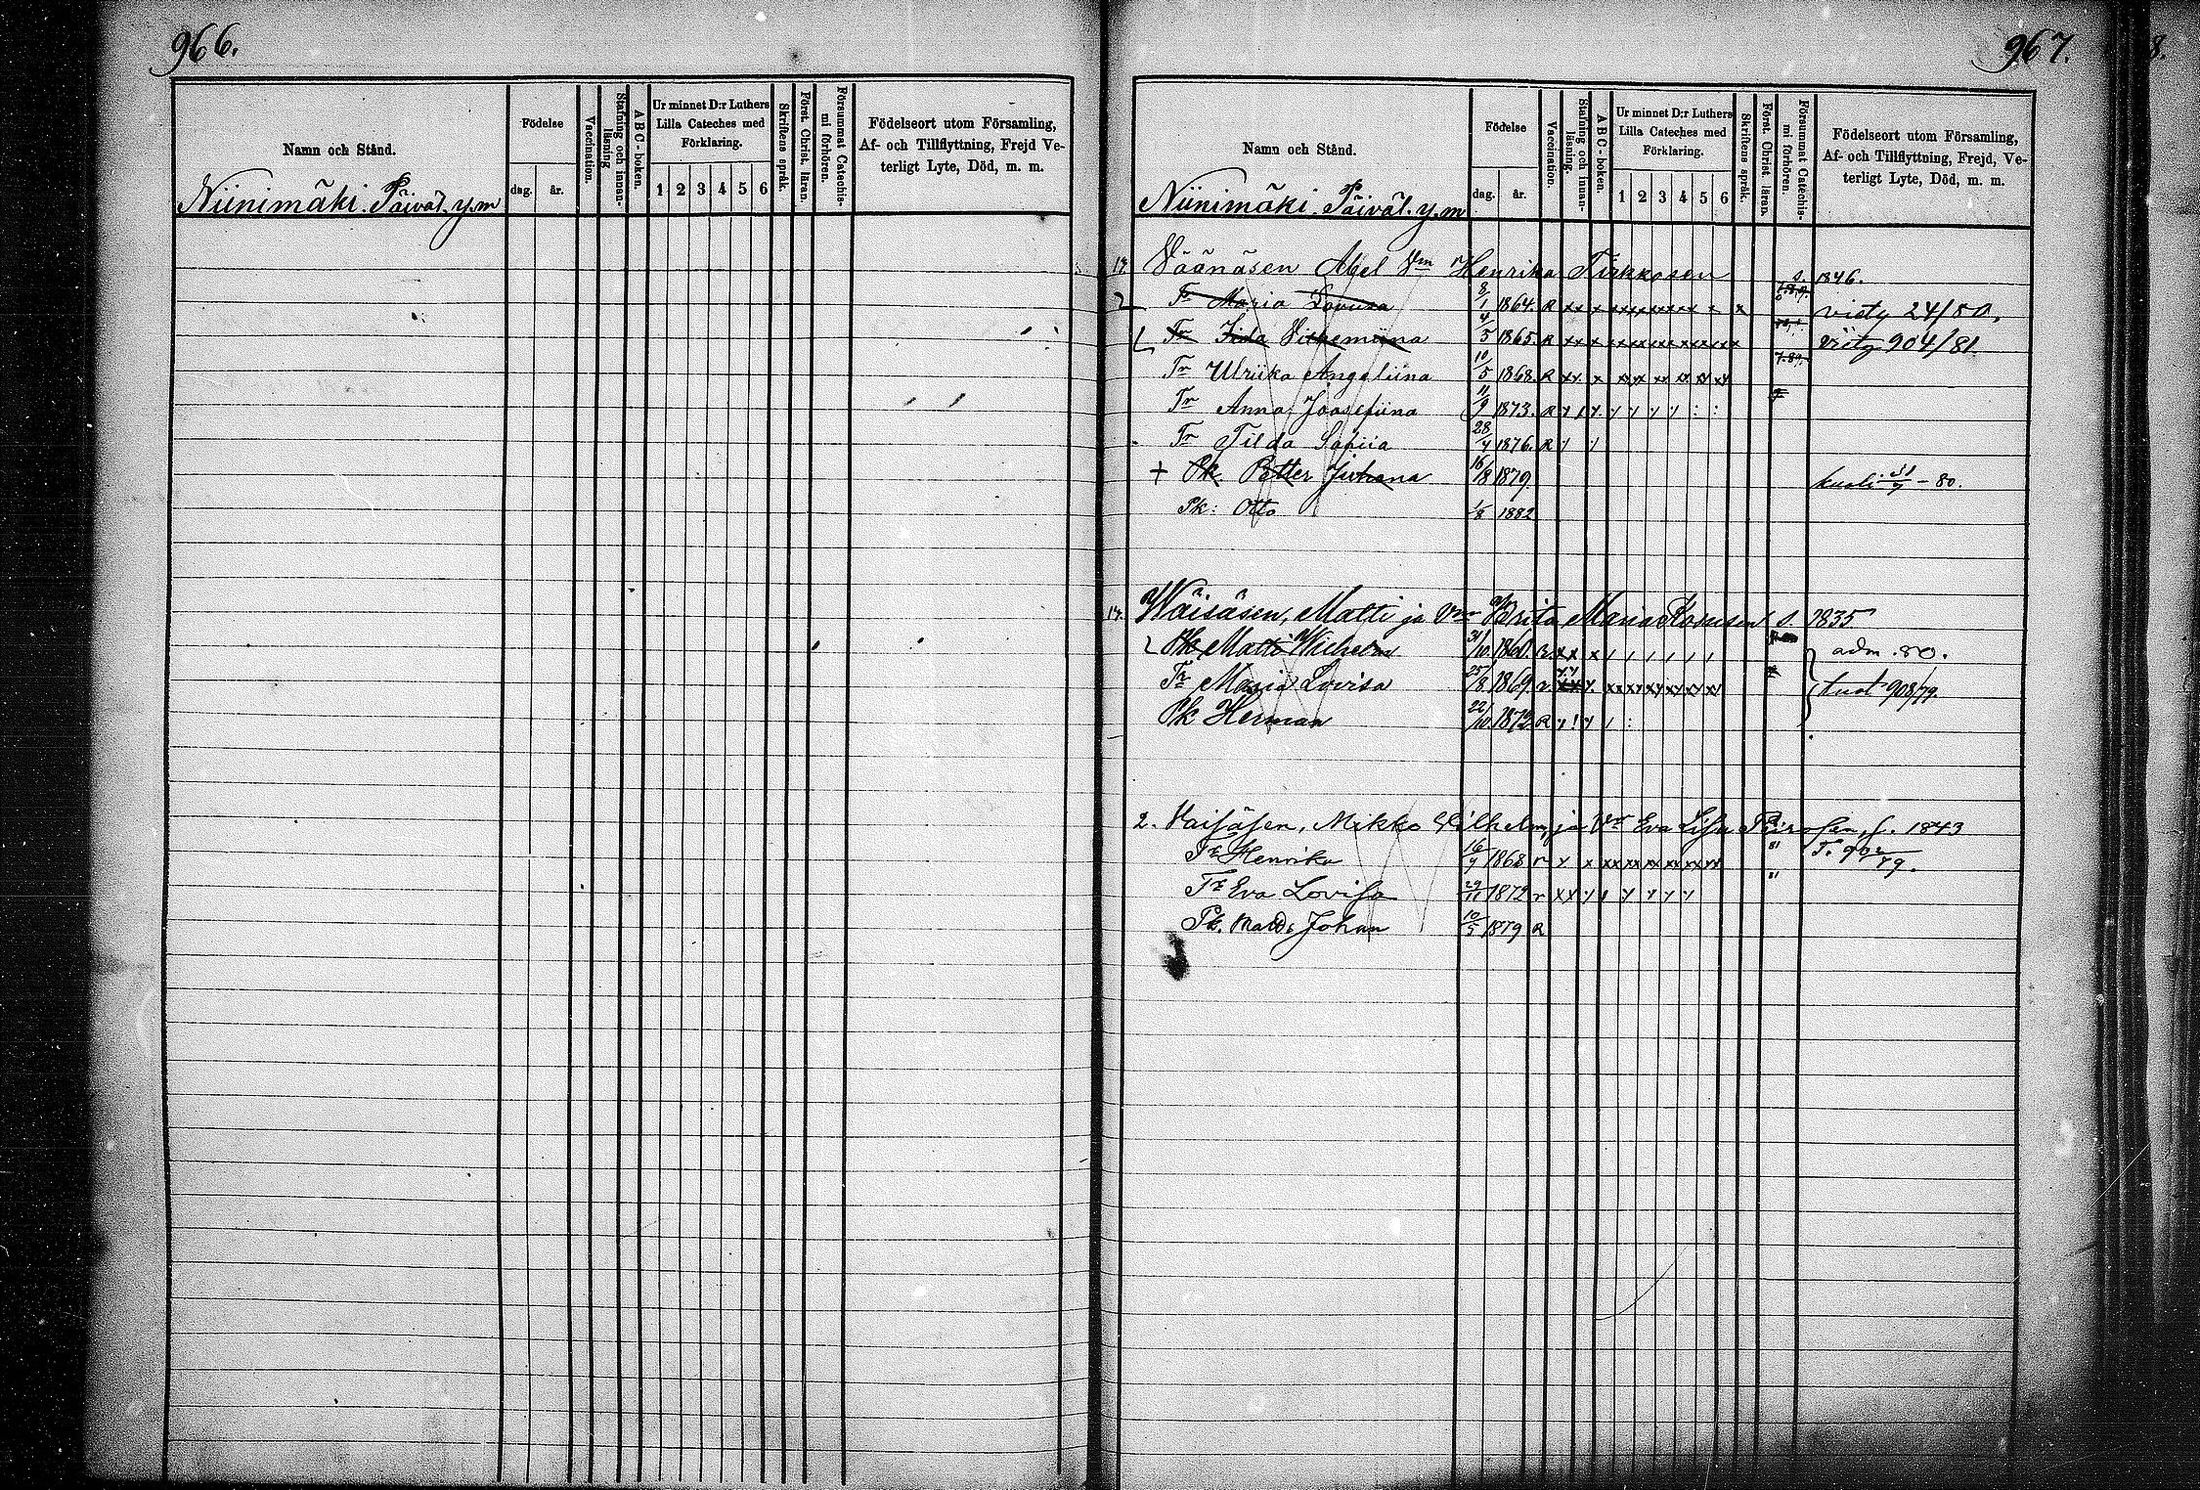 966.
Namn och Stånd.
Födelse
dag. år.
Vaccination.
Stafning och innan-läsning
ABC-boken.
Ur minnet D:r Luthers Lilla Cateches med Förklaring.
1 2 3 4 5 6
Skriftens språk.
Först. Christ. läran.
Försummat Catechis-mi förhören.
Födelseort utom Församling, Af- och Tillflyttning, Frejd Ve-terligt Lyte, Död, m. m.
Niinimäki. Päiväl. y.m
967.
8.
Namn och Stånd.
Födelse
dag. år.
Vaccination.
Stafning och innan-läsning.
ABC-boken.
Ur minnet D:r Luthers Lilla Cateches med Förklaring.
1 2 3 4 5 6
Skriftens språk.
Först. Christ. läran.
Försummat Catechis-mi förhören.
Födelseort utom Församling, Af- och Tillflyttning, Frejd, Ve-terligt Lyte, Död, m. m.
Niinimäki. Päiväl. y.m
Väänäsen Abel Vm Henrika Tirkkosen s. 1846.
Tr Maria Lovusa 8/1 1864. R xx x viety 24/80.
Tr Iida Vilhemiina 4/5 1865. R xx x 904/81
Tr Ulriika Angeliina 10/5 1868. R xx x
Tr Anna Joosefiina 11/9 1873. R
Tr Tilda Sofiia 28/4 1876. R
+ Pk. Petter Juhana 16/8 1879. kuoli - 80.
Pk: Otto 1/8 1882
Wäisäsen, Matti ja Vm Brita Maria Korusen s. 1835
Pk Matti Wilhelm 31/10 1860. R. xx x adm. 80.
Tr Maria Lovisa 25/8 1869 tuot 908/79.
Pk Herman 22/10 1872 R
2. Vaisäsen, Mikko Wilhelm, ja Vm Eva Lisa s. 1843
Tr Henrika 16/9 1868 r
Tr Eva Lovisa 29/11 1872 r xx
Pk. Matts Johan 10/5 1879 R